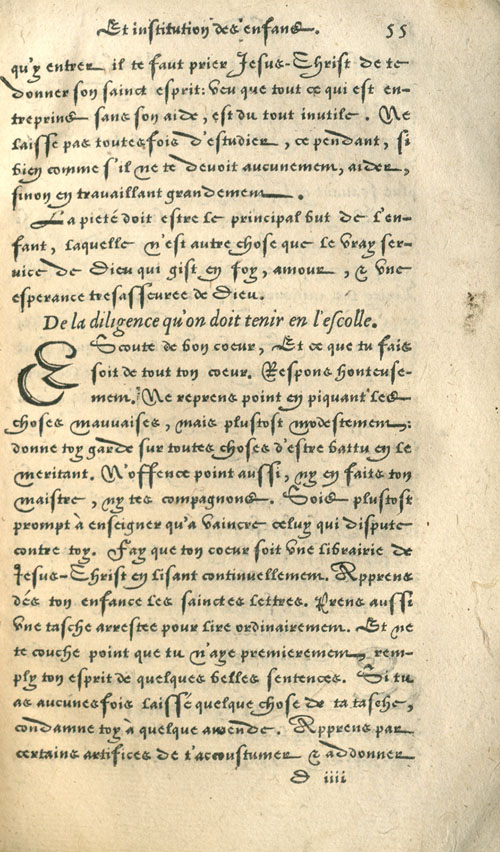 Et institution des enfans. 55
qu'y entrer il te faut prier Jesus-Christ de te
donner son sainct esprit: veu que tout ce qui est en-
treprins sans son aide, est du tout inutile. Ne
laisse pas toutesfois d'estudier, ce pendant, si
bien comme s'il ne te devoit aucunement, aider,
sinon en travaillant grandement.
La pieté doit estre le principal but de l'en-
fant, laquelle n'est autre chose que le vray ser-
vice de Dieu qui gist en foy, amour, & vne
esperance tresasseuree de Dieu.
De la diligence qu'on doit tenir en l'escolle.
EScoute de bon coeur, Et ce que tu fais
soit de tout ton coeur. Respons honteuse-
ment. Ne reprens point en piquant les
choses mauvaises, mais plustost modestement:
donne toy garde sur toutes choses d'estre battu en le
meritant. N'offence point aussi, ny en faits ton
maistre, ny tes compagnons. Sois plustost
prompt à enseigner qu'a vaincre celuy qui dispute
contre toy. Fay que ton coeur soit vne librairie de
Jesus-Christ en lisant continuellement. Apprens
dés ton enfance les sainctes lettres. Prens aussi
vne tasche arrestee pour lire ordinairement. Et ne
te couche point que tu n'aye premierement, rem-
ply ton esprit de quelques belles sentences. Si tu
as aucunesfois laissé quelque chose de ta tasche,
condamne toy à quelque amende. Apprens par
certains artifices de t'accoustumer & addonner
d iiii